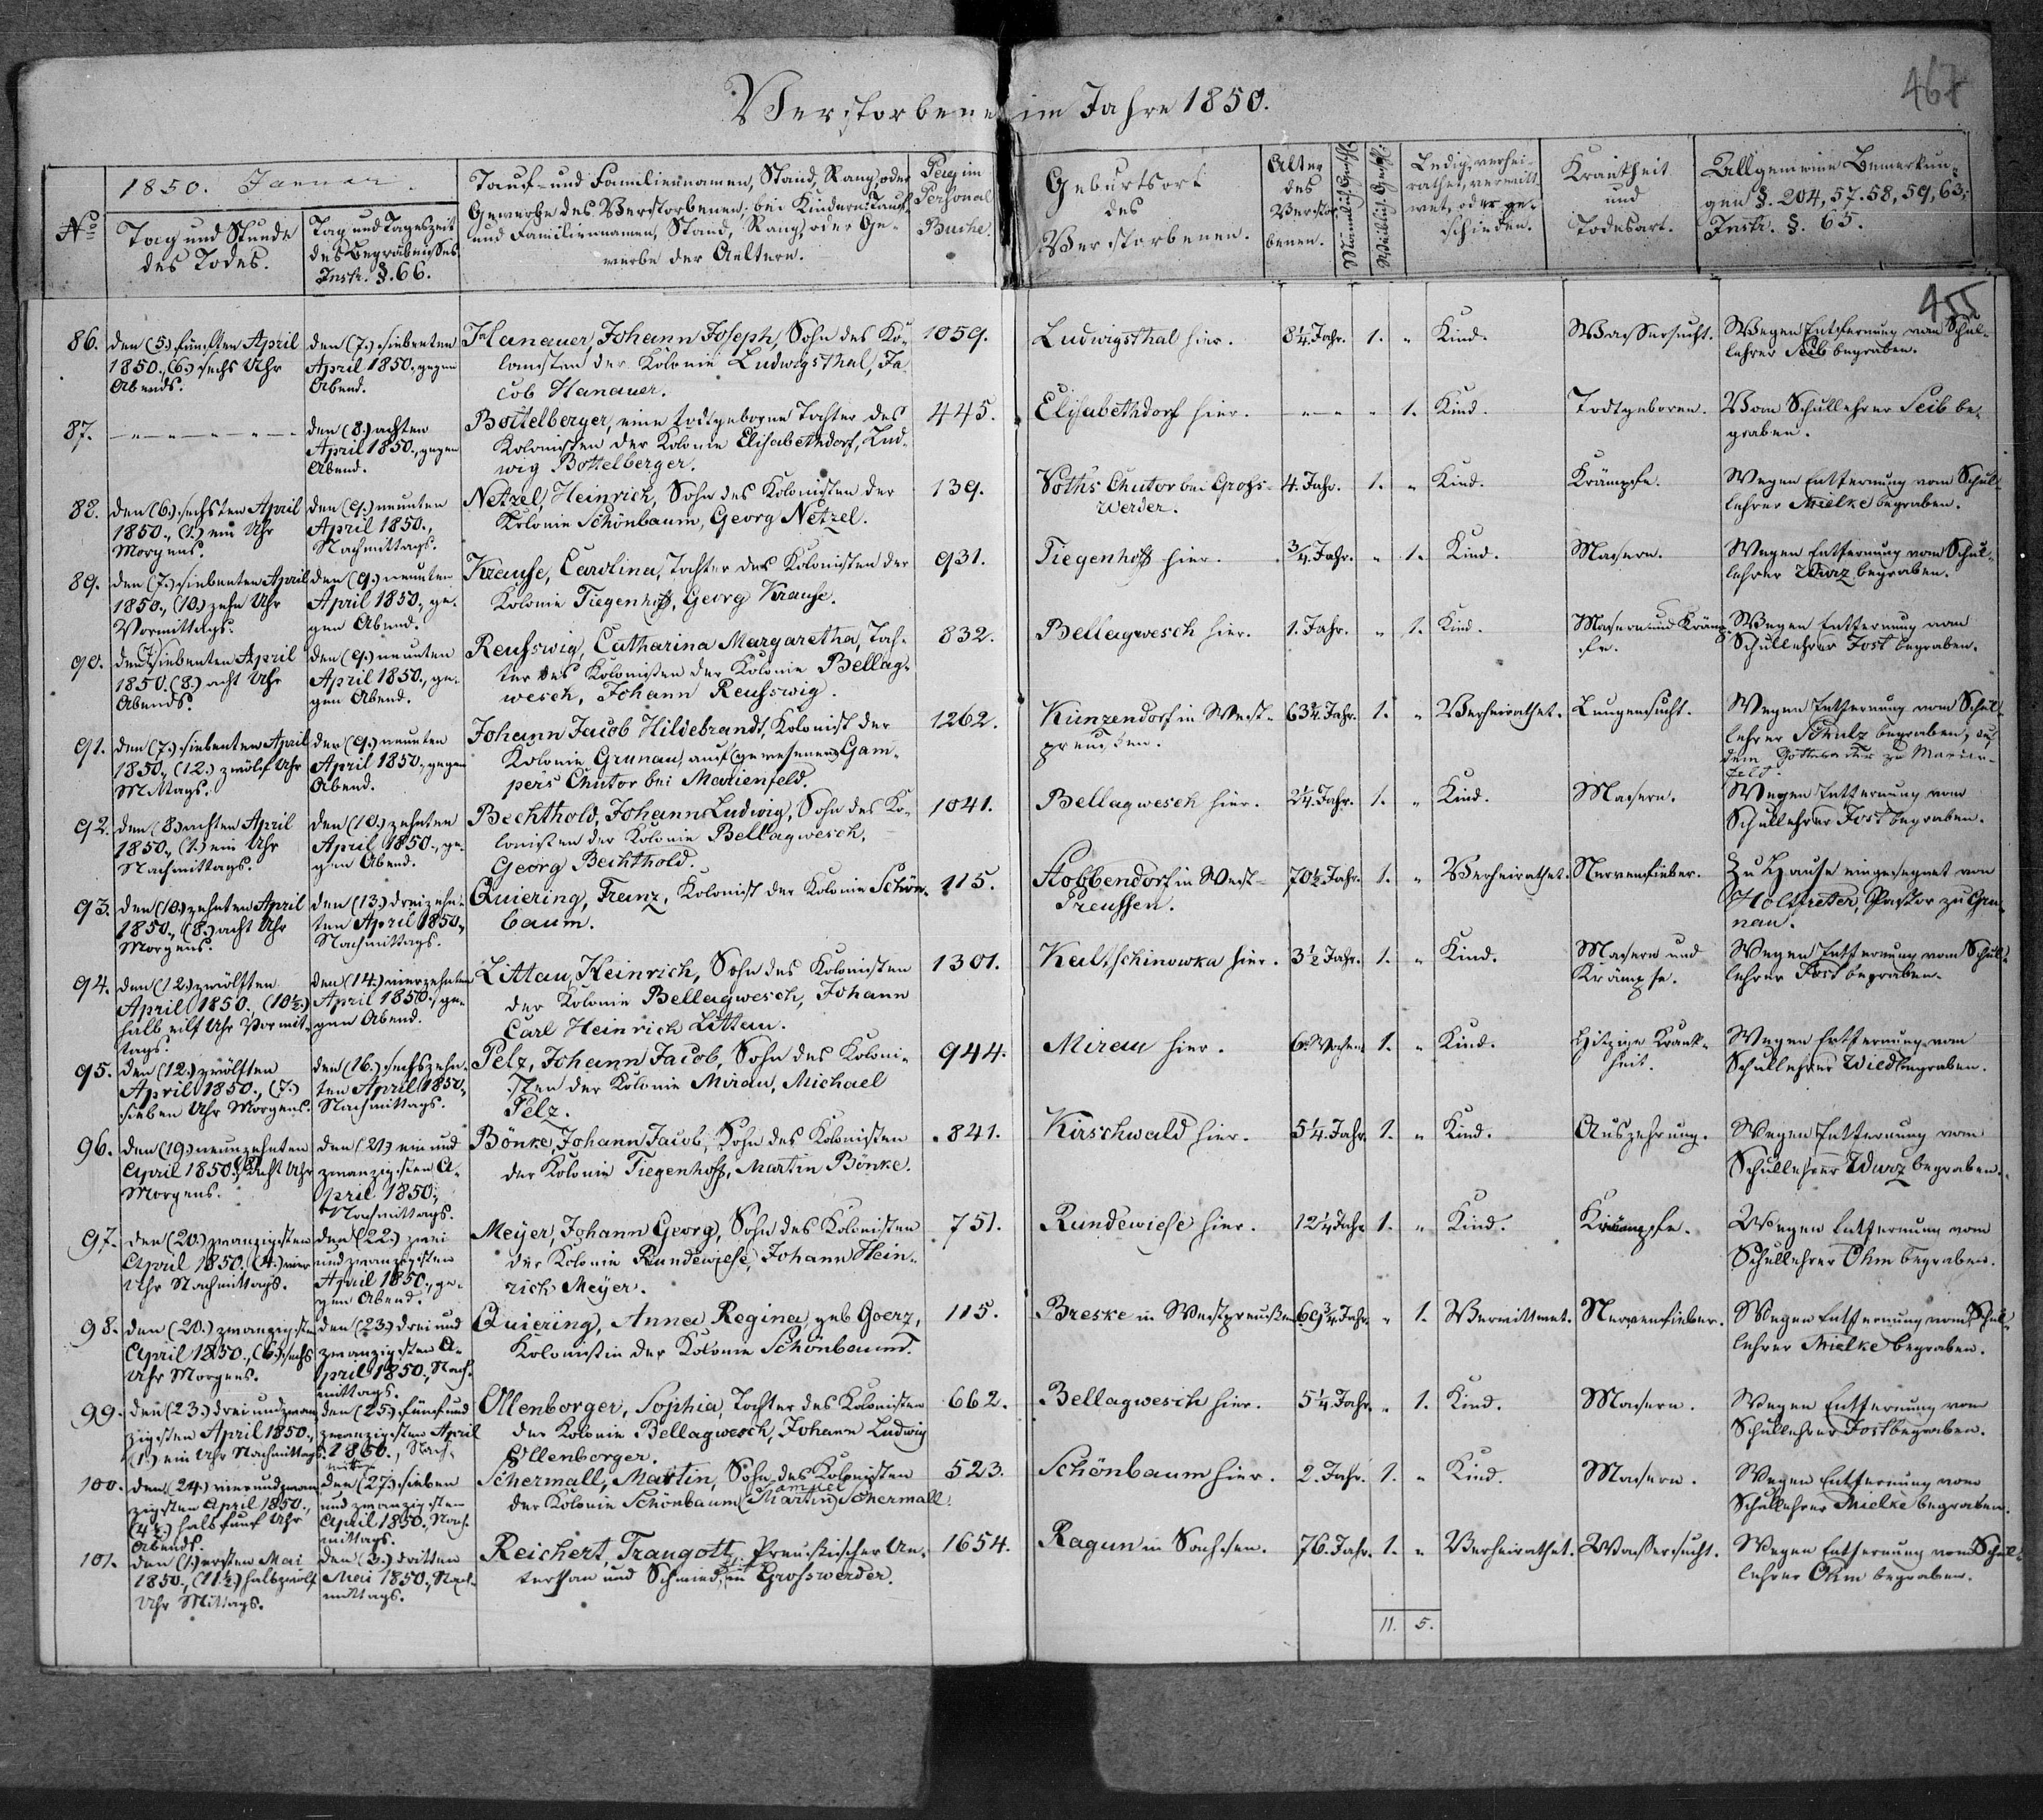 Verstorbene im Jahre 1850.
467
455
No
1850. Januar.
Tag und Stunde
des Todes.
Tag und Tageszeit
des Begräbnisses
Instr. §. 66.
Tauf- und Familiennamen, Stand, Rang, oder
Gewerbe des Verstorbenen; bei Kindern: Tauf-
und Familiennamen, Stand, Rang, oder Ge-
werbe der Aeltern.
Pag im
Personal
Buche.
Geburtsort
des
Verstorbenen.
Alter
des
Verstor-
benen.
Männlich Geschl.
Weiblich. Geschl.
Ledig, verhei-
rathet, verwitt-
wet, oder ge-
schieden.
Krankheit
und
Todesart.
Allgemeine Bemerkun-
gen §. 204, 57. 58, 59, 63;
Instr. §. 65.
86.
den (5.) fünften April
1850., (6.) sechs Uhr
Abends.
den (7.) siebenten
April 1850., gegen
Abend.
Hanauer, Johann Joseph, Sohn des Ko-
lonisten der Kolonie Ludwigsthal, Ja-
cob Hanauer.
1059.
Ludwigsthal hier.
8¼. Jahr.
1.
"
Kind.
Wassersucht.
Wegen Entfernung vom Schul-
lehrer Seib begraben.
87.
— " — " — " — " —
den (8.) achten
April 1850., gegen
Abend.
Bottelberger, eine todtgeborne Tochter des
Kolonisten der Kolonie Elisabethdorf, Lud-
wig Bottelberger.
445.
Elisabethdorf hier.
" — " — "
"
1.
Kind.
Todtgeboren.
Vom Schullehrer Seib be-
graben.
88.
den (6.) sechsten April
1850., (1.) ein Uhr
Morgens.
den (9.) neunten
April 1850.,
Nachmittags.
Netzel, Heinrich, Sohn des Kolonisten der
Kolonie Schönbaum, Georg Netzel.
139.
Voths Chutor bei Gross-
werder.
4. Jahr.
1.
"
Kind.
Krämpfe.
Wegen Entfernung vom Schul-
lehrer Mielke begraben.
89.
den (7.) siebenten April
1850., (10.) zehn Uhr
Vormittags.
den (9.) neunten
April 1850., ge-
gen Abend.
Krause, Carolina, Tochter des Kolonisten der
Kolonie Tiegenhoff, Georg Krause.
931.
Tiegenhoff hier.
¾. Jahr.
"
1.
Kind.
Masern.
Wegen Entfernung vom Schul-
lehrer Wurz begraben.
90.
den (7.) siebenten April
1850. (8.) acht Uhr
Abends.
den (9.) neunten
April 1850., ge-
gen Abend.
Reusswig, Catharina Margaretha, Toch-
ter des Kolonisten der Kolonie Bellag-
wesch, Johann Reusswig.
832.
Bellagwesch hier.
1. Jahr.
"
1.
Kind.
Masern und Kräm-
pfe.
Wegen Entfernung vom
Schullehrer Jost begraben.
91.
den (7.) siebenten April
1850., (12.) zwölf Uhr
Mittags.
den (9.) neunten
April 1850., gegen
Abend.
Johann Jacob Hildebrandt, Kolonist der
Kolonie Grunau, auf (gewesenen) Gam-
pers Chutor bei Marienfeld.
1262.
Kunzendorf in West-
preussen.
63¾. Jahr.
1.
"
Verheirathet.
Lungensucht.
Wegen Entfernung vom Schul-
lehrer Schulz begraben, auf
dem Gottesacker zu Marien-
feld.
92.
den (8.) achten April
1850., (1.) ein Uhr
Nachmittags.
den (10.) zehnten
April 1850., ge-
gen Abend.
Bechthold, Johann Ludwig, Sohn des Ko-
lonisten der Kolonie Bellagwesch,
Georg Bechthold.
1041.
Bellagwesch hier.
2¼. Jahr.
1.
"
Kind.
Masern.
Wegen Entfernung vom
Schullehrer Jost begraben.
93.
den (10.) zehnten April
1850., (8.) acht Uhr
Morgens.
den (13.) dreizehn-
ten April 1850.,
Nachmittags.
Quiering, Franz, Kolonist der Kolonie Schön-
baum.
115.
Stobbendorf in West-
Preussen.
70½. Jahr.
1.
"
Verheirathet.
Nervenfieber.
Zu Hause eingesegnet von
Holtfretter, Pastor zu Gru-
nau.
94.
den (12.) zwölften
April 1850. (10½.)
halb eilf Uhr Vormit-
tags.
den (14.) vierzehnten
April 1850., ge-
gen Abend.
Littau, Heinrich, Sohn des Kolonisten
der Kolonie Bellagwesch, Johann
Carl Heinrich Littau.
1301.
Kaltschinowka hier.
3½ Jahr.
1.
"
Kind.
Masern und
Krämpfe.
Wegen Entfernung vom Schul-
lehrer Jost begraben.
95.
den (12.) zwölften
April 1850., (7.)
sieben Uhr Morgens.
den (16.) sechszehn-
ten April 1850.,
Nachmittags.
Pelz, Johann Jacob, Sohn des Koloni-
sten der Kolonie Mirau, Michael
Pelz.
944.
Mirau hier.
6. Wochen
1.
"
Kind.
Hitzige Krank-
heit.
Wegen Entfernung vom
Schullehrer Wied begraben.
96.
den (19.) neunzehnten
April 1850., (8.) acht Uhr
Morgens.
den (21.) ein und
zwanzigsten A-
pril 1850.,
Nachmittags.
Bönke, Johann Jacob, Sohn des Kolonisten
der Kolonie Tiegenhoff, Martin Bönke.
841.
Kirschwald hier.
5¼. Jahr.
1.
"
Kind.
Auszehrung.
Wegen Entfernung vom
Schullehrer Wurz begraben.
97.
den (20.) zwanzigsten
April 1850. (4.) vier
Uhr Nachmittags.
den (22.) zwei
und zwanzigsten
April 1850., ge-
gen Abend.
Meyer, Johann Georg, Sohn des Kolonisten
der Kolonie Rundewiese, Johann Hein-
rich Meyer.
751.
Rundewiese hier.
12¼ Jahr.
1.
"
Kind.
Krämpfe.
Wegen Entfernung vom
Schullehrer Ohm begraben.
98.
den (20.) zwanzigsten
April 1850., (6.) sechs
Uhr Morgens.
den (23.) drei und
zwanzigsten A-
pril 1850., Nach-
mittags.
Quiering, Anna Regina, geb Goerz,
Kolonistin der Kolonie Schönbaum.
115.
Breske in Westpreußen
69¾ Jahr.
"
1.
Verwittwet.
Nervenfieber.
Wegen Entfernung vom Schul-
lehrer Mielke begraben.
99.
den (23.) drei und zwan-
zigsten April 1850.,
(1.) ein Uhr Nachmittags.
den (25.) fünf und
zwanzigsten April
1850., Nach-
mittags
Ollenborger, Sophia, Tochter des Kolonisten
der Kolonie Bellagwesch, Johann Ludwig
Ollenborger.
662.
Bellagwesch hier.
5¼. Jahr.
"
1.
Kind.
Masern.
Wegen Entfernung vom
Schullehrer Jost begraben.
100.
den (24.) vier und zwan-
zigsten April 1850.,
(4½.) halb fünf Uhr
Abends.
den (27.) sieben
und zwanzigsten
April 1850., Nach-
mittags.
Schermall, Martin, Sohn des Kolonisten
Samuel
der Kolonie Schönbaum (Martin) Schermall.
523.
Schönbaum hier.
2. Jahr.
1.
"
Kind.
Masern.
Wegen Entfernung vom
Schullehrer Mielke begraben.
101.
den (1.) ersten Mai
1850., (11½.) halb zwölf
Uhr Mittags.
den (3.) dritten
Mai 1850., Nach-
mittags.
Reichert, Traugott, Preussischer Un-
terthan und Schmied, in Grosswerder.
1654.
Ragun in Sachsen.
76. Jahr.
1.
"
Verheirathet.
Wassersucht.
Wegen Entfernung vom Schul-
lehrer Ohm begraben.
11.
5.